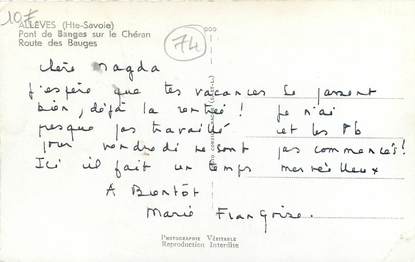 10F
ALLÈVES (Hte-Savoie)
Pont de Banges sur le Chéran
Route des Bauges
74
Chère Magda
J'espère que tes vacances se passent
bien, déjà la rentrée ! Je n'ai
presque pas travaillé et les Pb
pour vendredi ne sont pas commencés !
Ici il fait un temps merveilleux
A Bientôt
Marie Françoise.
PHOTOGRAPHIE VÉRITABLE
Reproduction Interdite